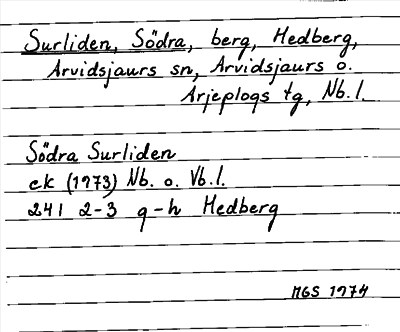 Surliden, Södra, berg, Hedberg,
Arvidsjaurs sn, Arvidsjaurs o.
Arjeplogs tg, Nb.l.
Södra Surliden
ek (1973) Nb. o. Vb.l.
241 2-3 g-h Hedberg
MGS 1974